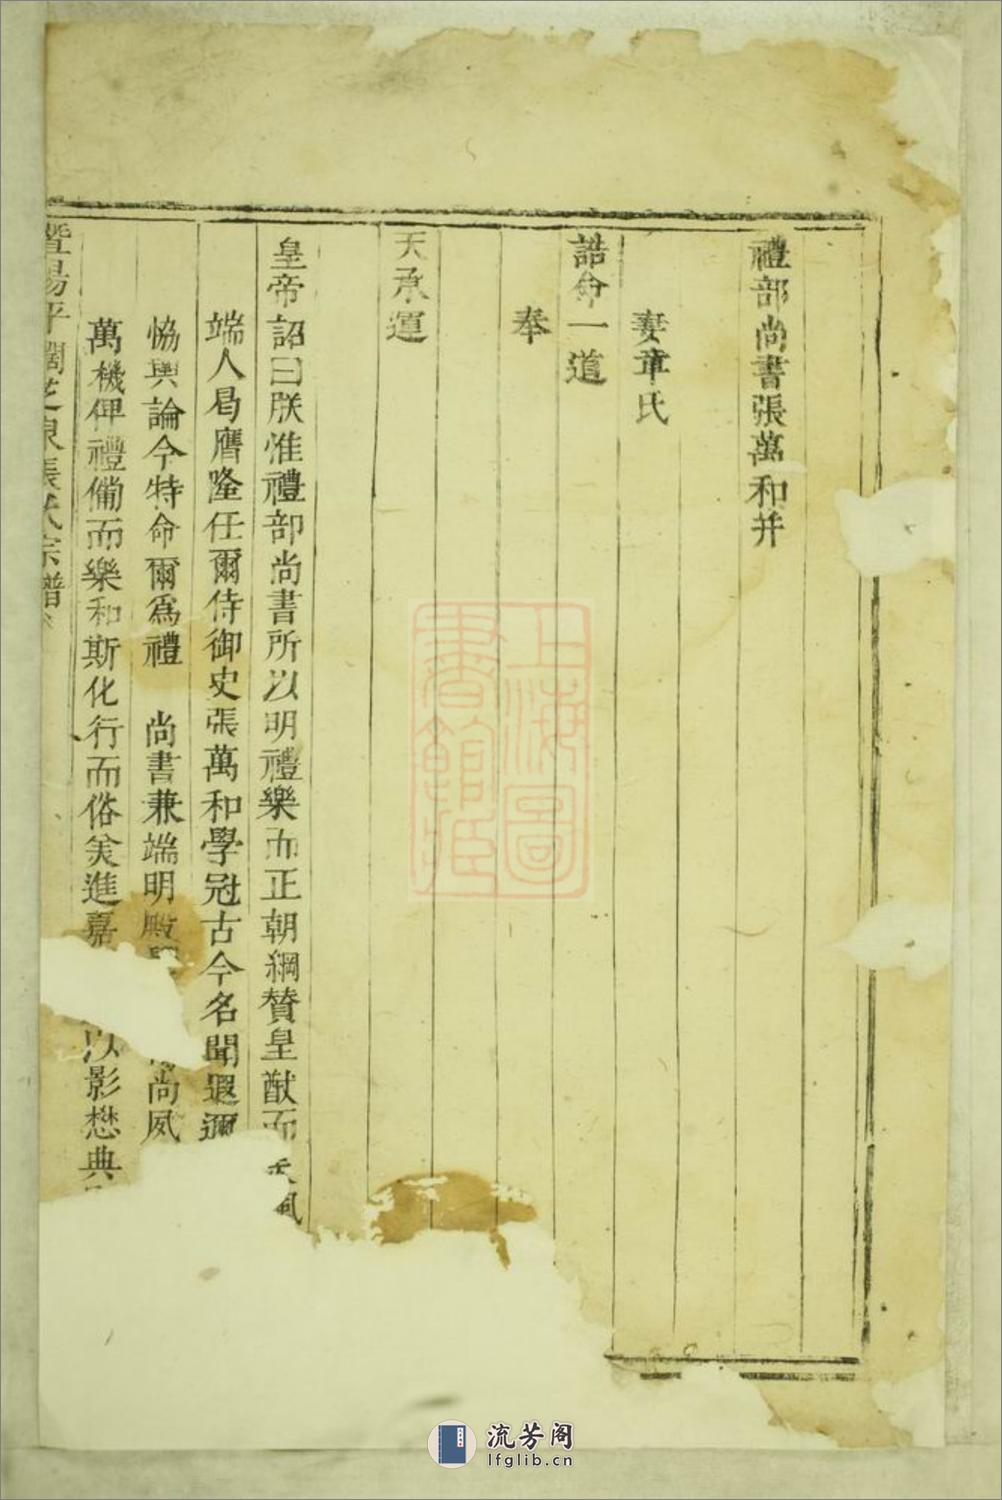 禮部尚書張萬和并
妻章氏
誥命一道
奉
天承運
皇帝詔曰朕惟禮部尚書所以明禮樂而正朝綱贊皇猷而天風
端人曷膺隆任爾侍御史張萬和學冠古今名聞遐邇
恊輿論今特命爾爲禮 尚書兼端明殿 尚夙
萬機俾禮備而樂和斯化行而俗美進嘉 以影懋典
暨陽平闊芝泉張氏宗譜
上海圖
書館藏
流芳阁
lfglib.cn